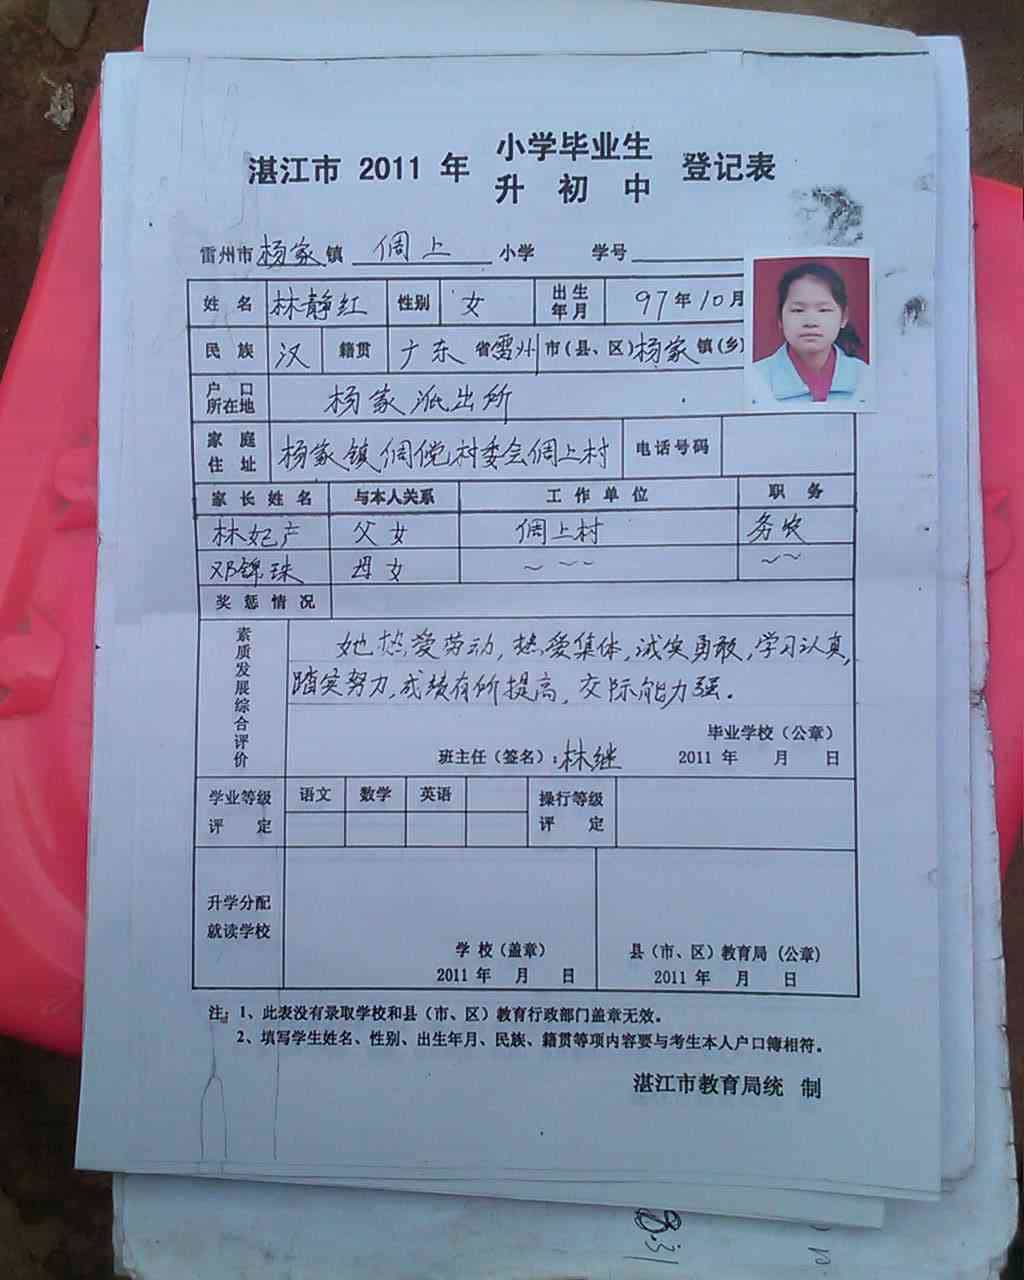 湛江市 2011 年 小学毕业生 登记表
升 初 中
雷州市 杨家 镇 倜上 小学 学号
姓 名 林静红 性别 女 出生年月 97 年 10 月
民 族 汉 籍贯 广东 省 雷州 市(县、区) 杨家 镇(乡)
户 口 所在地 杨家派出所
家 庭 住 址 杨家镇倜傥村委会倜上村 电话号码
家 长 姓 名 与本人关系 工 作 单 位 职 务
林妃产 父女 倜上村 务农
邓锦珠 母女 ~ ~ ~ ~ ~
奖 惩 情 况
素质发展综合评价
她热爱劳动,热爱集体,诚实勇敢,学习认真,
踏实努力,成绩有所提高,交际能力强.
毕业学校(公章)
班主任(签名):林继 2011 年 月 日
学业等级 语文 数学 英语 操行等级
评 定 评 定
升学分配
就读学校
学 校(盖章) 县(市、区)教育局(公章)
2011 年 月 日 2011 年 月 日
注: 1、此表没有录取学校和县(市、区)教育行政部门盖章无效。
2、填写学生姓名、性别、出生年月、民族、籍贯等项内容要与考生本人户口簿相符。
湛江市教育局统 制
8.31